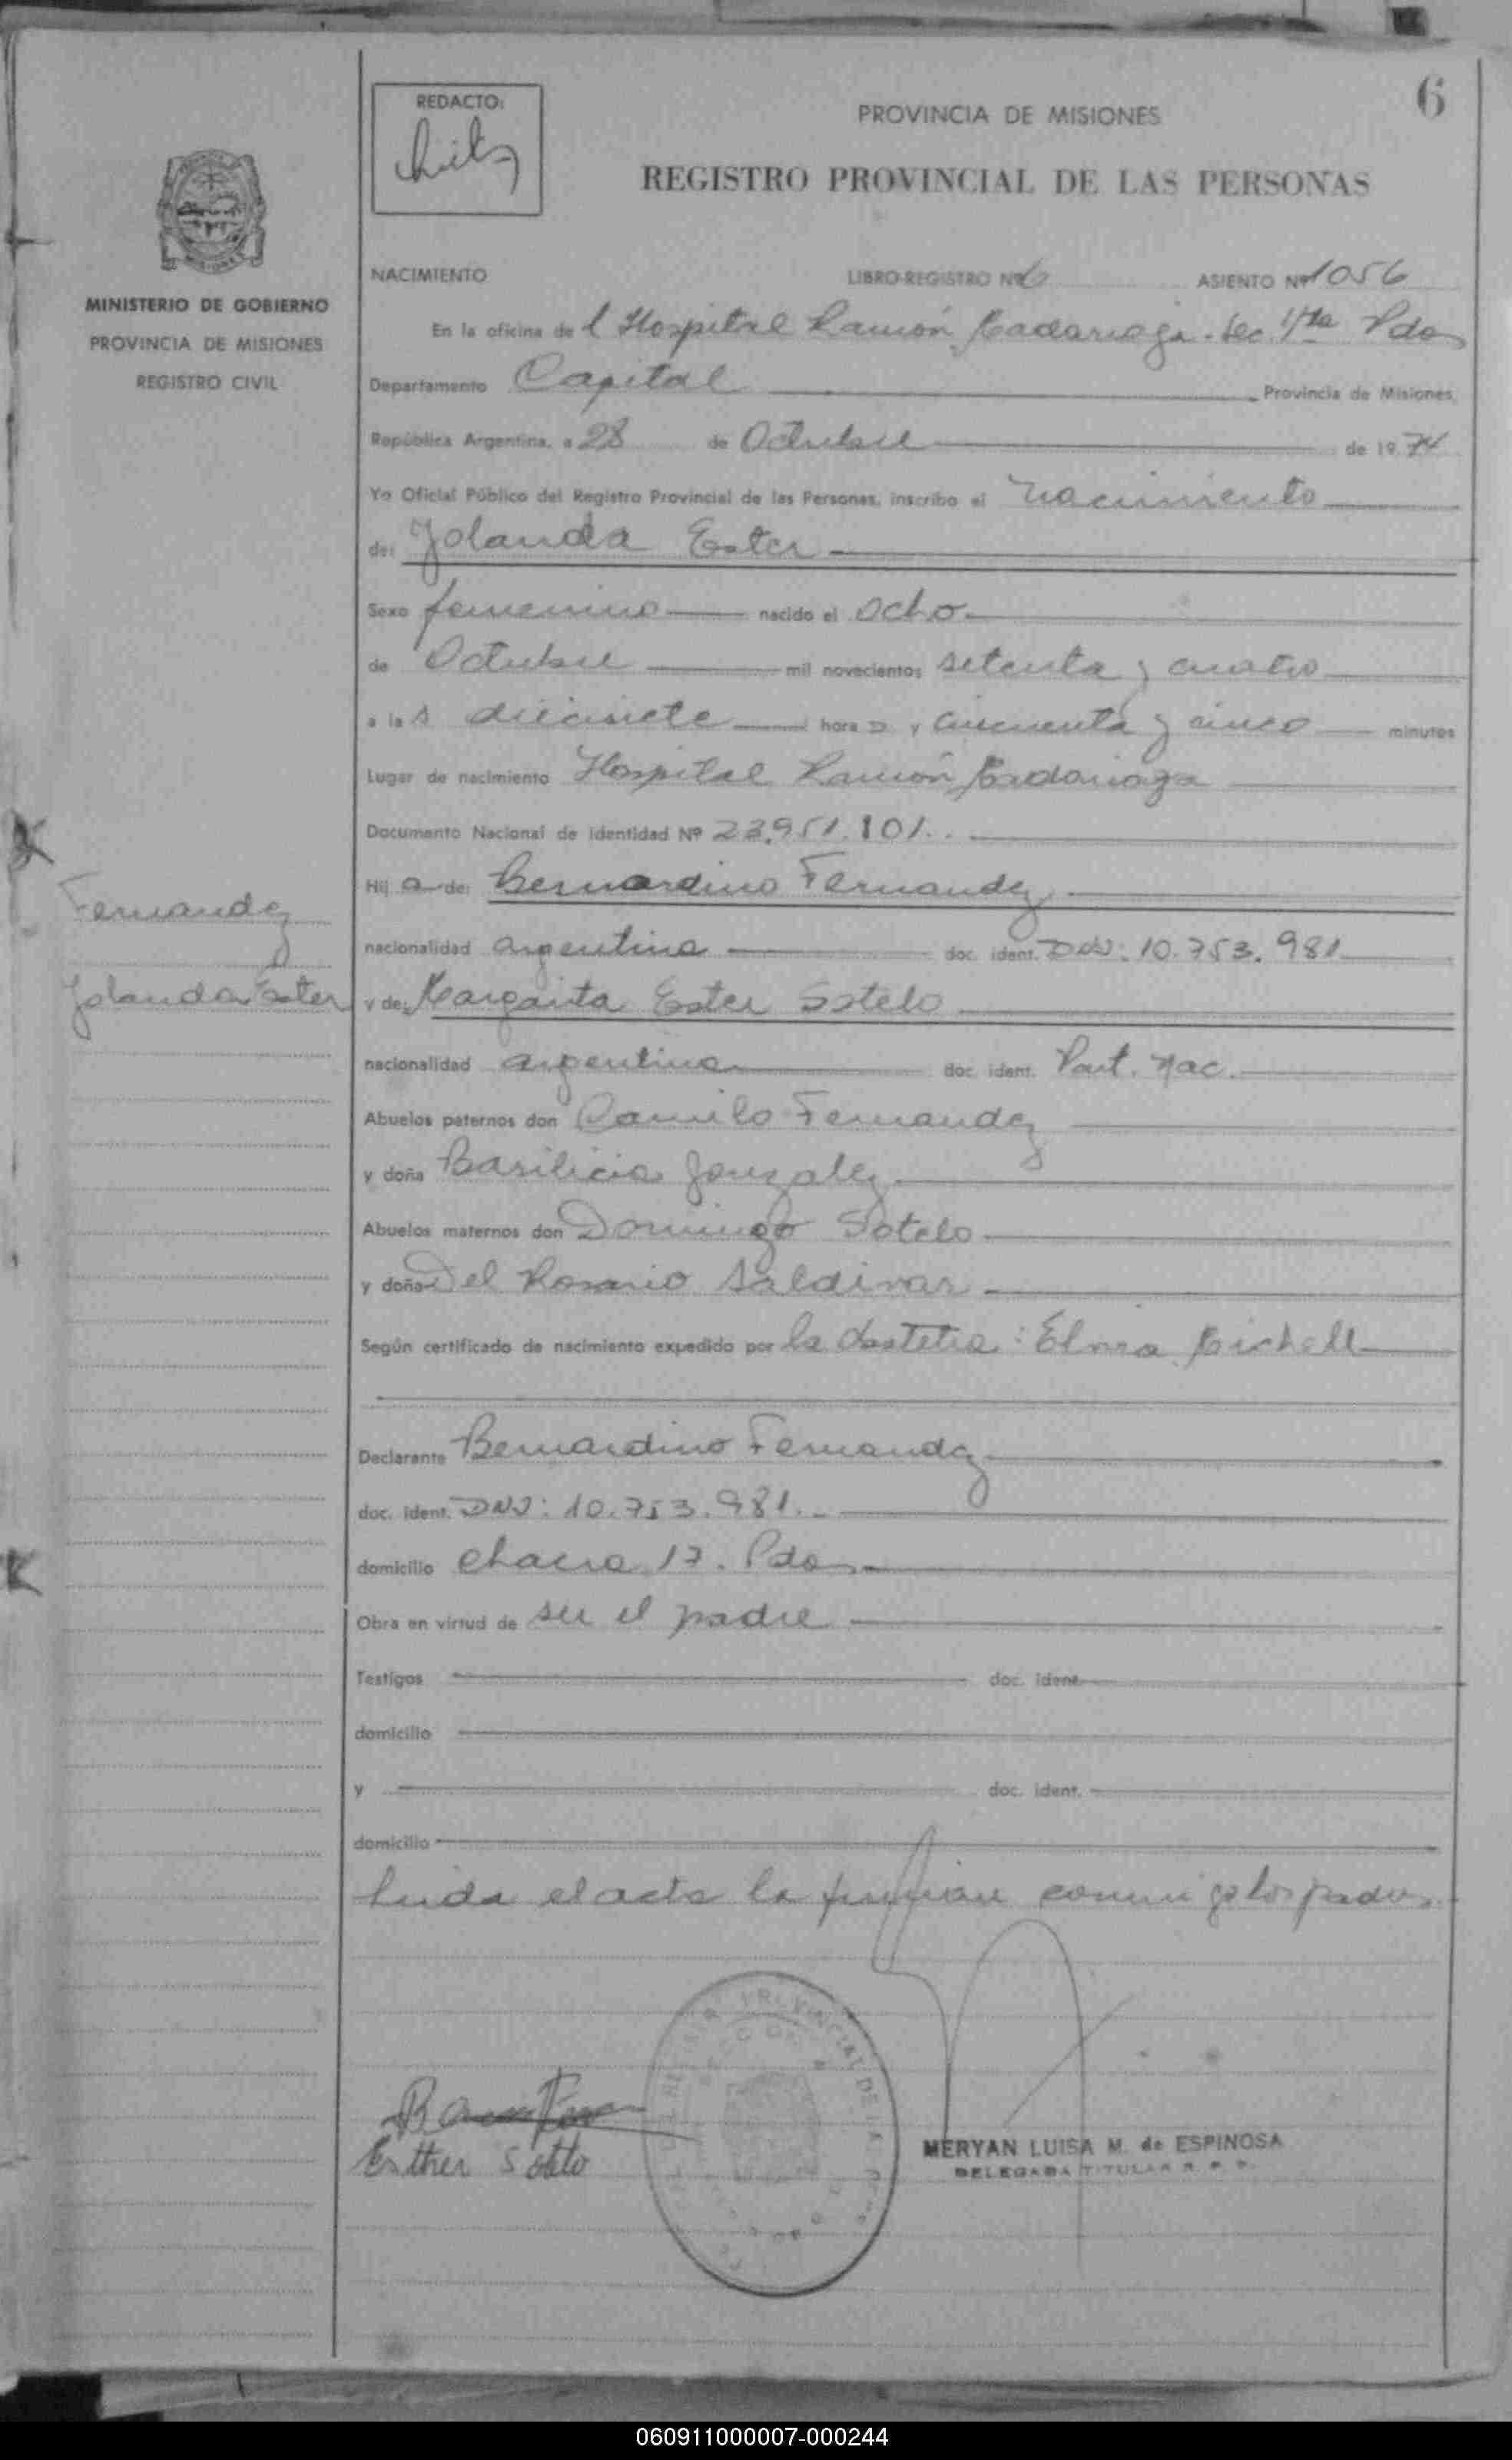 6
REDACTO:
PROVINCIA DE MISIONES
REGISTRO PROVINCIAL DE LAS PERSONAS
MINISTERIO DE GOBIERNO
PROVINCIA DE MISIONES
REGISTRO CIVIL
NACIMIENTO LIBRO-REGISTRO Nº 6 ASIENTO Nº 1056
En la oficina del Hospital Ramón Madariaga - Sec. Pdas
Departamento Capital Provincia de Misiones,
República Argentina, a 28 de Octubre de 1974
Yo Oficial Público del Registro Provincial de las Personas, inscribo el nacimiento
de: Yolanda Ester
Sexo femenino nacido el ocho
de Octubre mil novecientos setenta y cuatro
a las diecisiete horas y cincuenta y cinco minutos
Lugar de nacimiento Hospital Ramón Madariaga
Documento Nacional de Identidad Nº 23.951.101.
Hija de: Bernardino Fernandez
nacionalidad argentina doc. ident. DNI: 10.753.981
Fernandez
Yolanda Ester
y de: Margarita Ester Sotelo
nacionalidad argentina doc. ident. Part. Nac.
Abuelos paternos don Camilo Fernandez
y doña Basilicia Gonzalez
Abuelos maternos don Domingo Sotelo
y doña Del Rosario Saldivar
Según certificado de nacimiento expedido por la obstetra: Michell
Declarante Bernardino Fernandez
doc. ident. DNI: 10.753.981.
domicilio Chacra 17. Pdas
Obra en virtud de ser el padre
Testigos doc. ident.
domicilio
y doc. ident.
domicilio
Leida el acta la firman conmigo los padres
Esther Sotelo
MERYAN LUISA M. de ESPINOSA
DELEGADA TITULAR R. P. P.
060911000007-000244